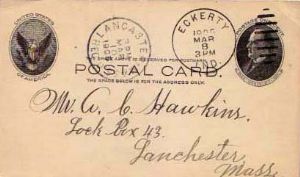 UNITED STATES
OF AMERICA
LANCASTER
ECKERTY
MAR
8
3PM
IND.
POSTAL CARD.
THE SPACE BELOW IS FOR THE ADDRESS ONLY.
Mr. A. C. Hawkins.
Lock Box 43.
Lanchester
Mass.